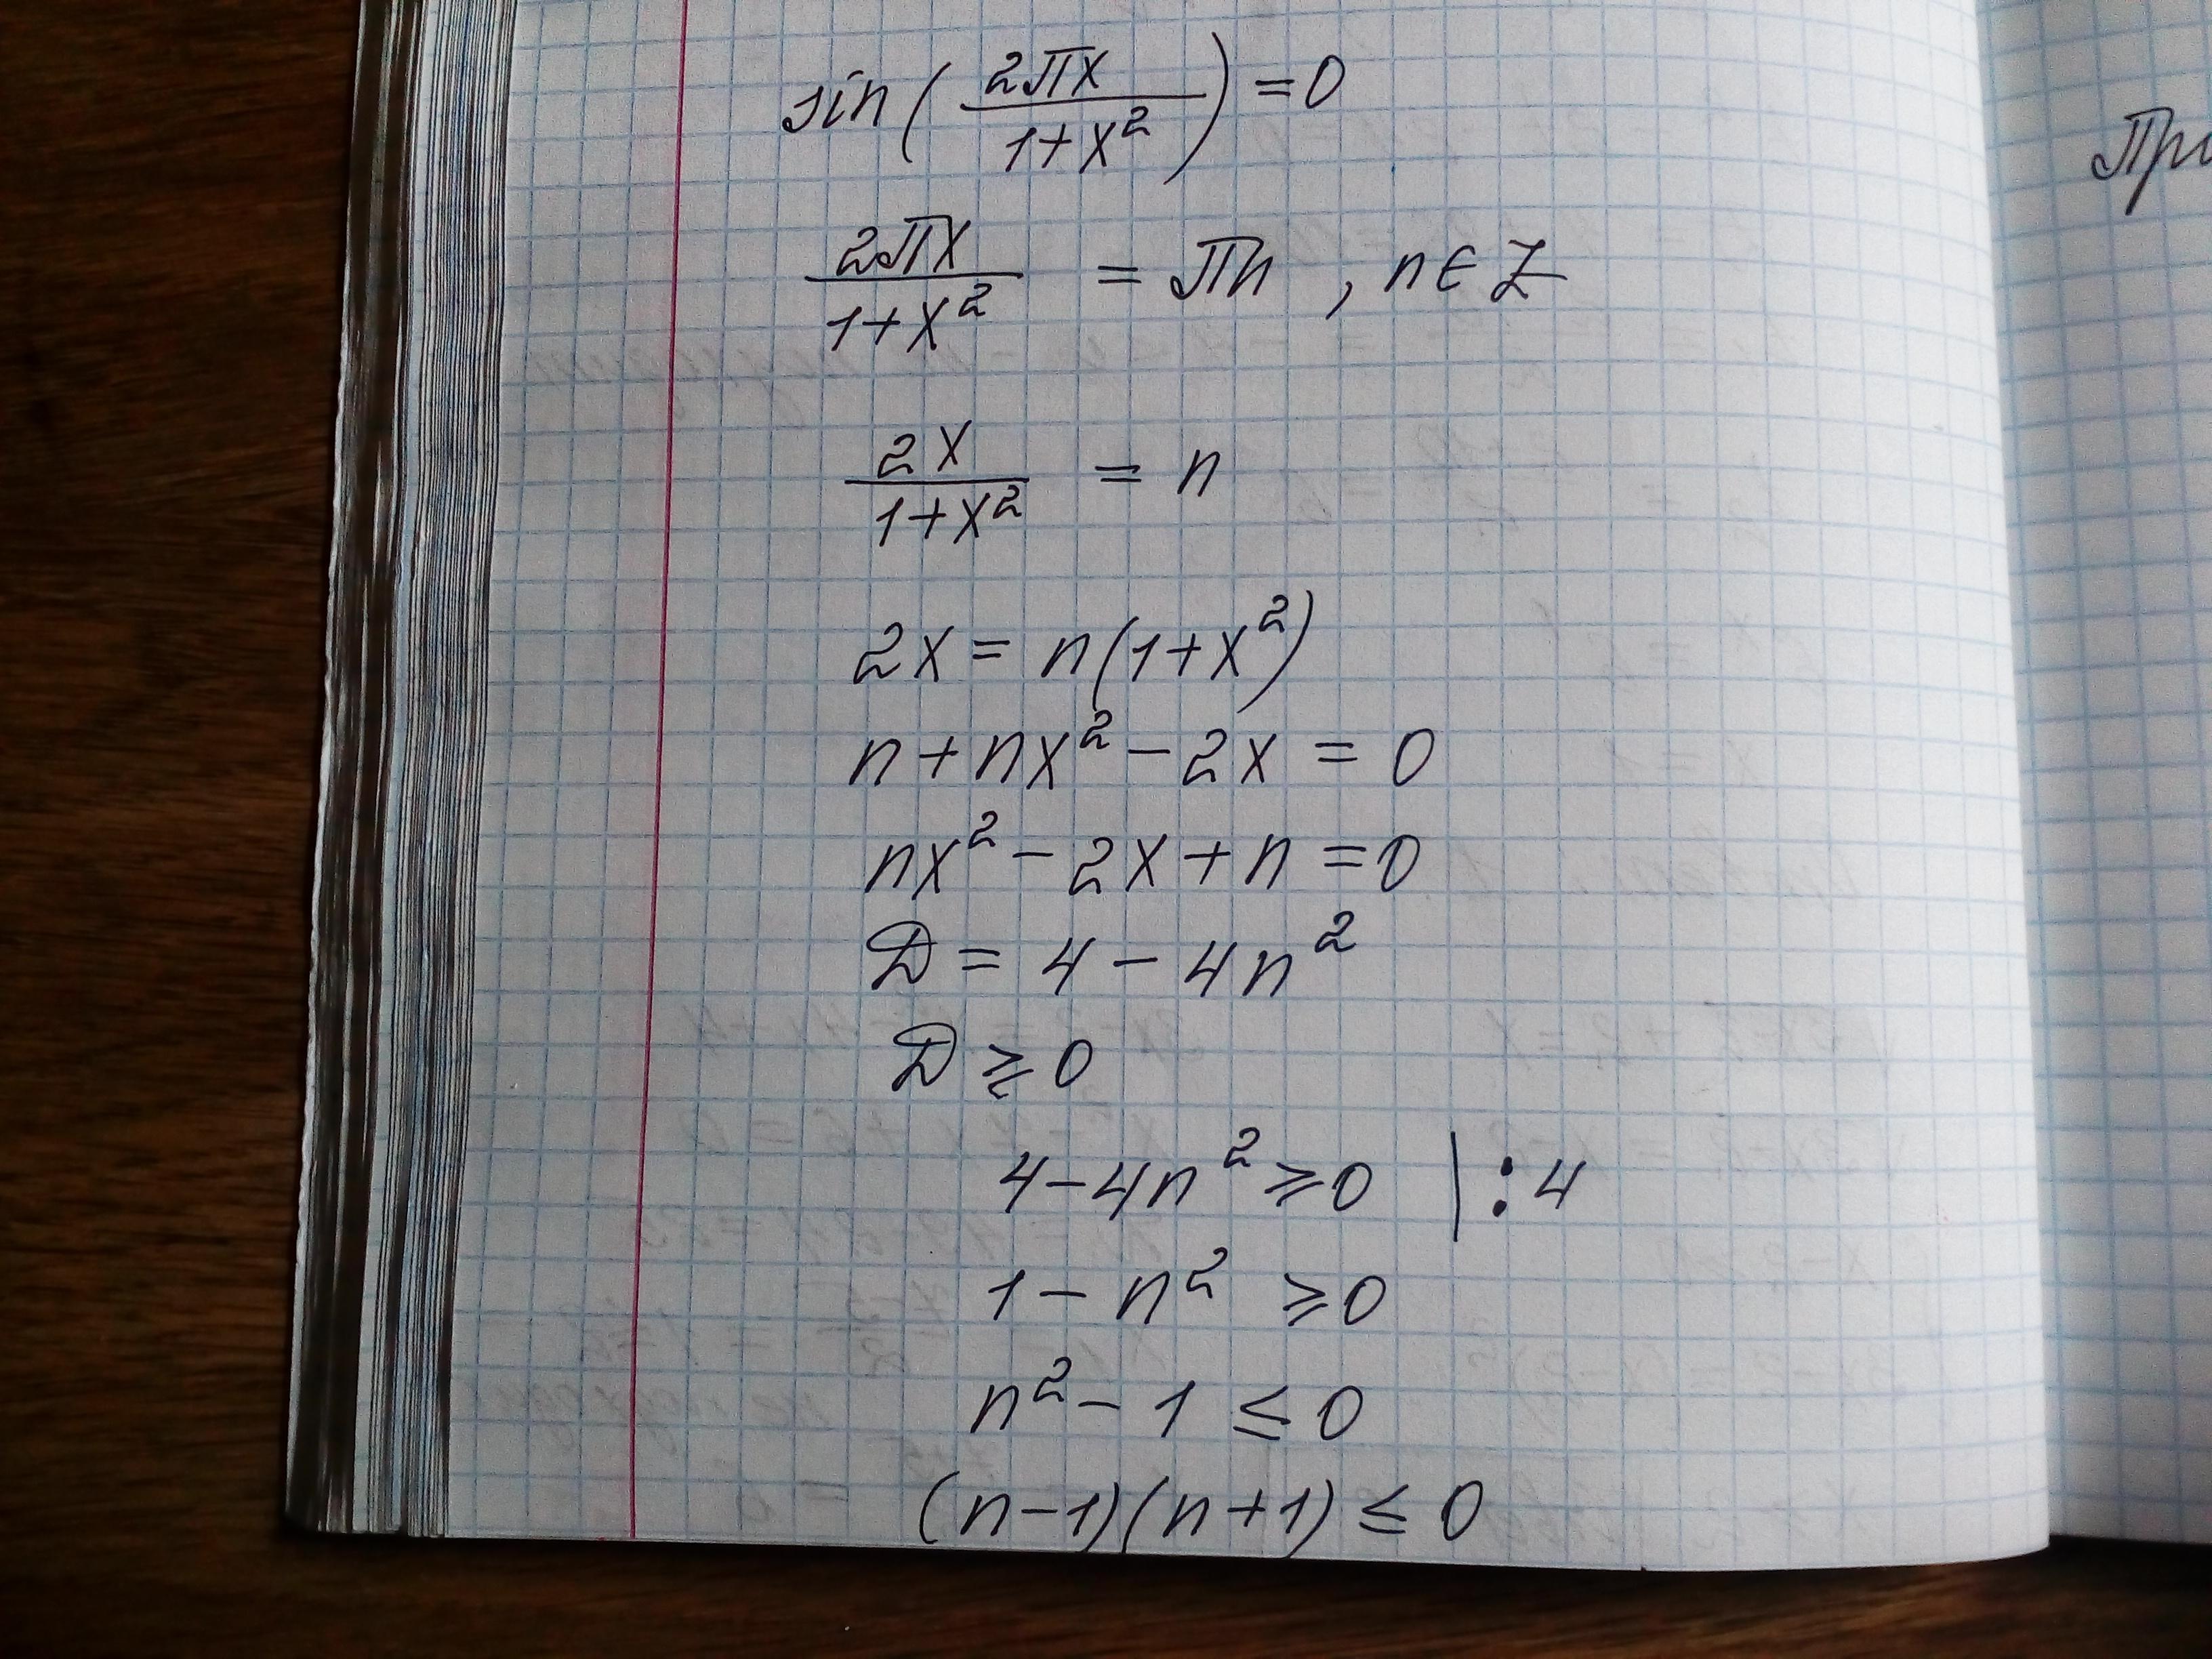 sin(2πx/(1+x²))=0
2πx/(1+x²) = πn, n∈Z
2x/(1+x²) = n
2x = n(1+x²)
n+nx²-2x = 0
nx²-2x+n=0
Д = 4-4n²
Д ≥ 0
4-4n² ≥ 0 | :4
1-n² ≥ 0
n²-1 ≤ 0
(n-1)(n+1) ≤ 0